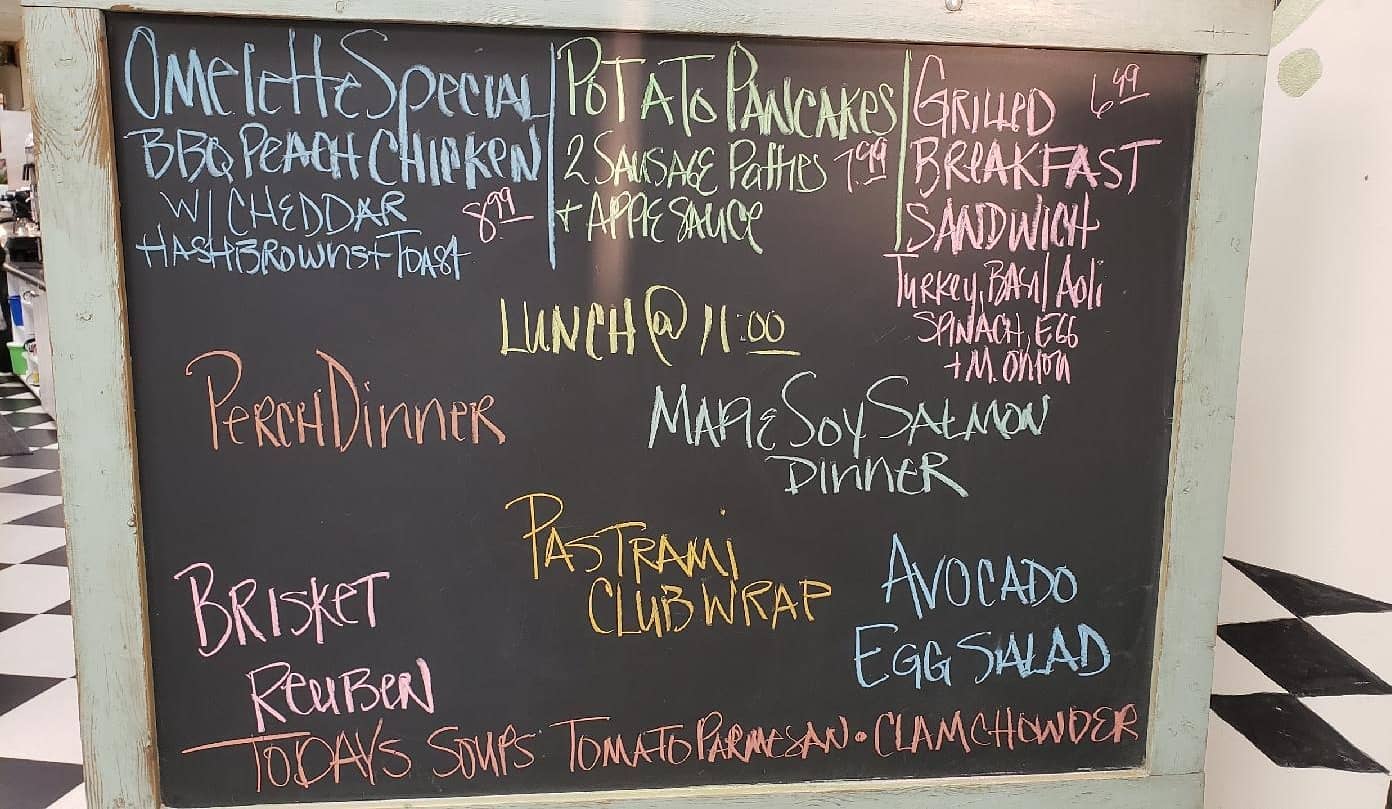 Omelette Special
BBQ Peach Chicken
W/ Cheddar
8.99
Hashbrowns + Toast
Potato Pancakes
2 Sausage Patties 7.99
+ Applesauce
Grilled 6.99
Breakfast
Sandwich
Turkey, Basil Aoli
Spinach, Egg
+ M. Onion
Lunch @ 11:00
Perch Dinner
Maple Soy Salmon
Dinner
Pastrami
Club Wrap
Brisket
Reuben
Avocado
Egg Salad
Todays Soups Tomato Parmesan • Clam Chowder